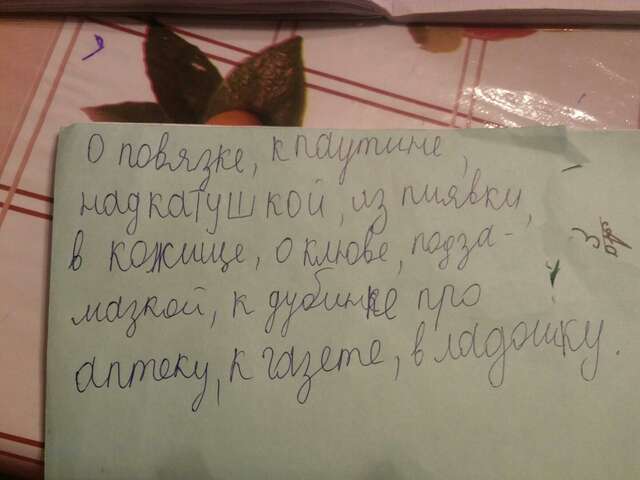 О повязке, к паутине,
надкатушкой, из пиявки,
в кожице, о клюве, подза-
мазкой, к дубинке про
аптеку, к газете, в ладошку.